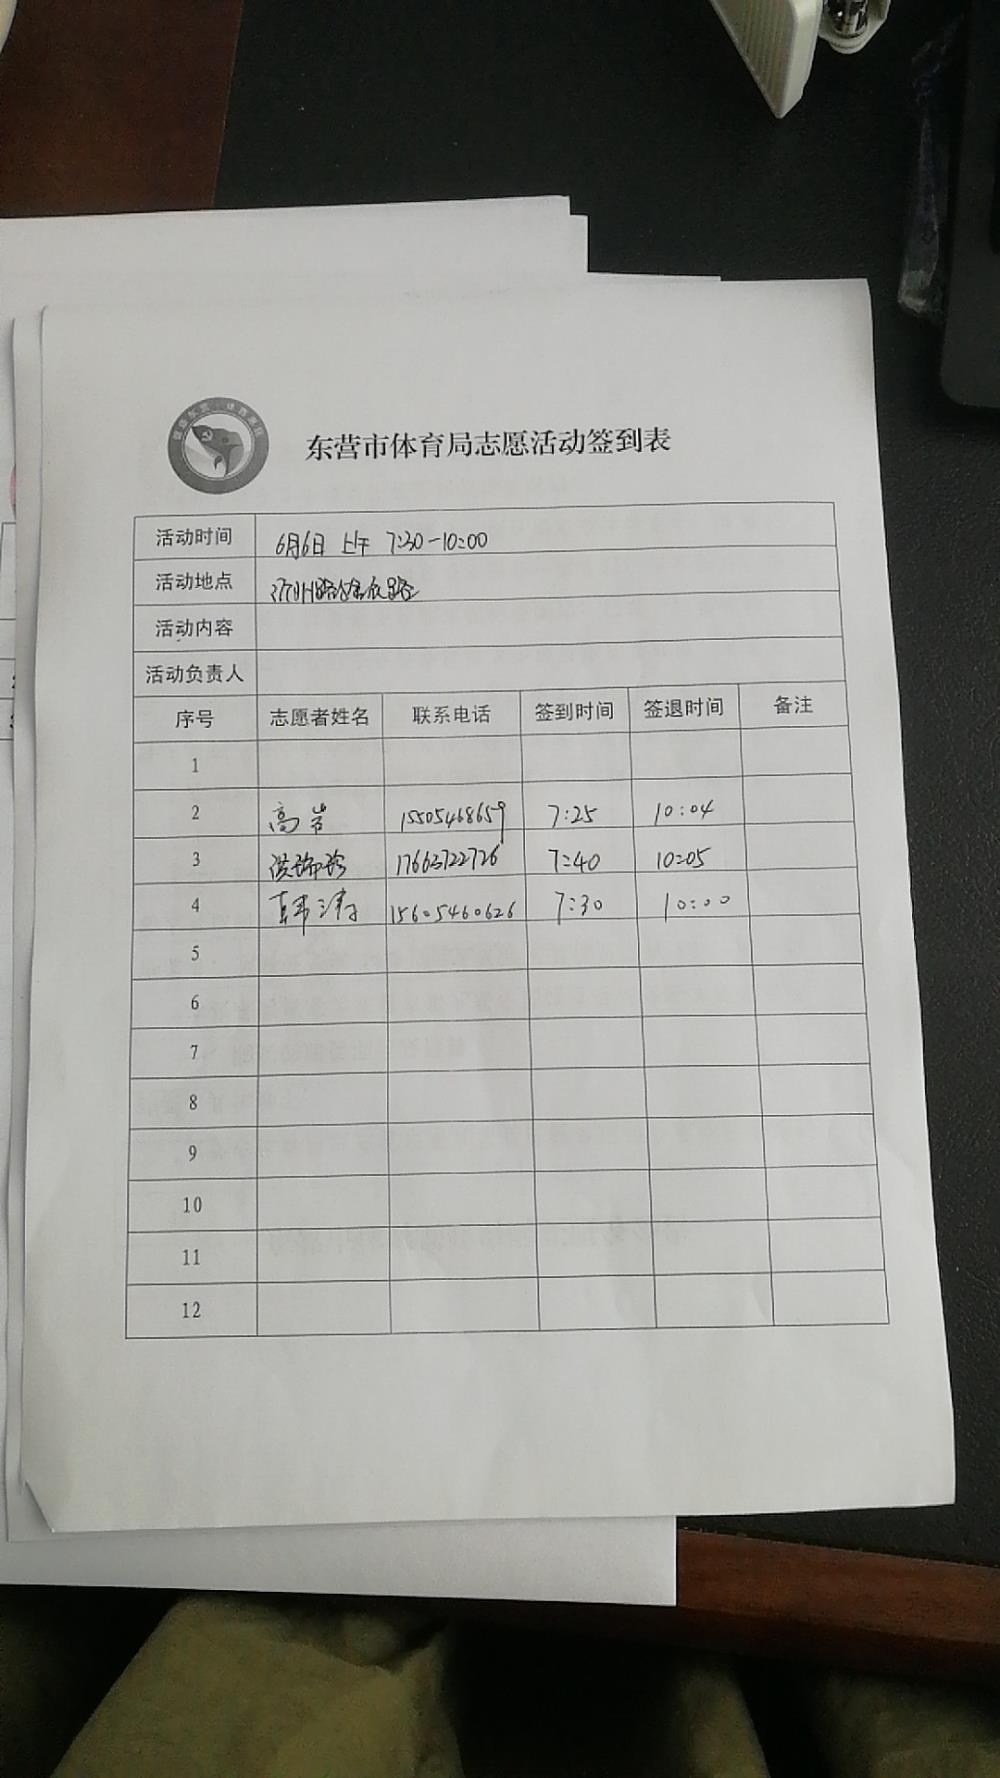 东营市体育局志愿活动签到表
活动时间 6月6日 上午 7:30-10:00
活动地点
活动内容
活动负责人
序号 志愿者姓名 联系电话 签到时间 签退时间 备注
1
2 高岩 15505468659 7:25 10:04
3 17663722726 7:40 10:05
4 韩涛 15605460626 7:30 10:00
5
6
7
8
9
10
11
12